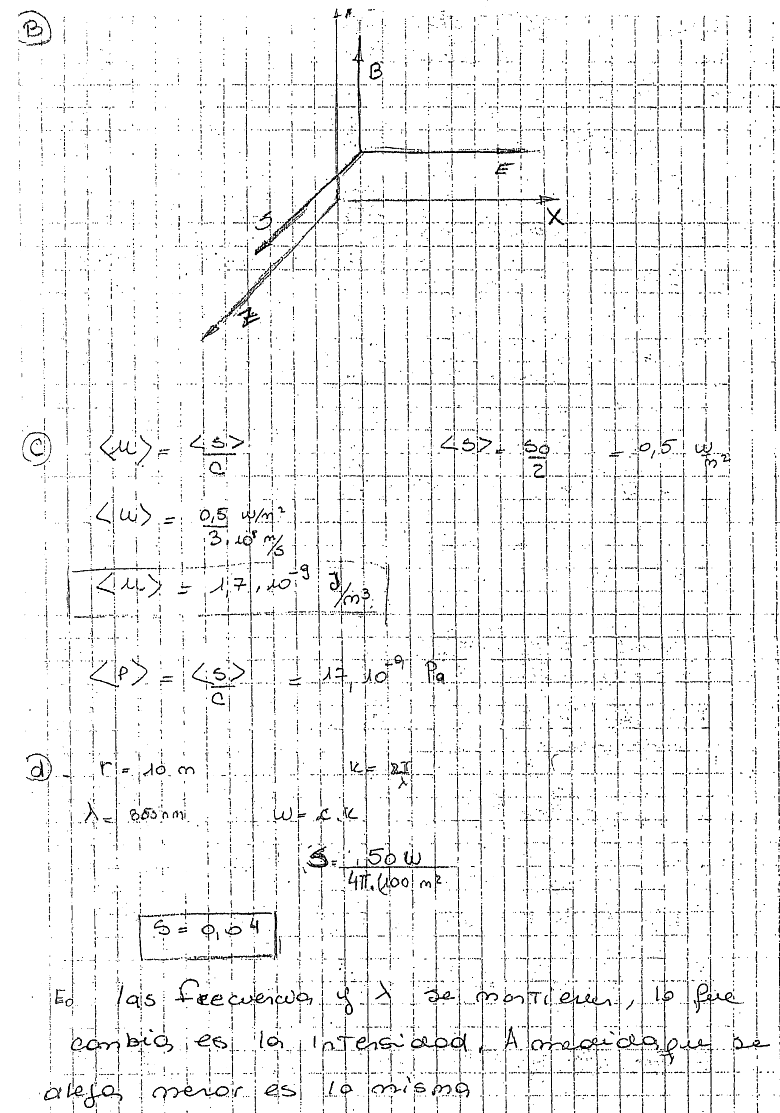 B
B
E
X
S
Z
c) <u> = <S>/c    <S> = S0/2 = 0,5 w/m²
<u> = 0,5 w/m² / 3.10⁸ m/s
<u> = 1,7.10⁻⁹ J/m³
<P> = <S>/c = 17,10⁻⁹ Pa
d) r = 10 m    k = 2π/λ
λ =    nm    w = c.k
S = 50 w / 4π.(100 m²
S = 0,04
las frecuencia y λ se mantienen, lo que
cambia es la intensidad. A medida que se
aleja menor es la misma